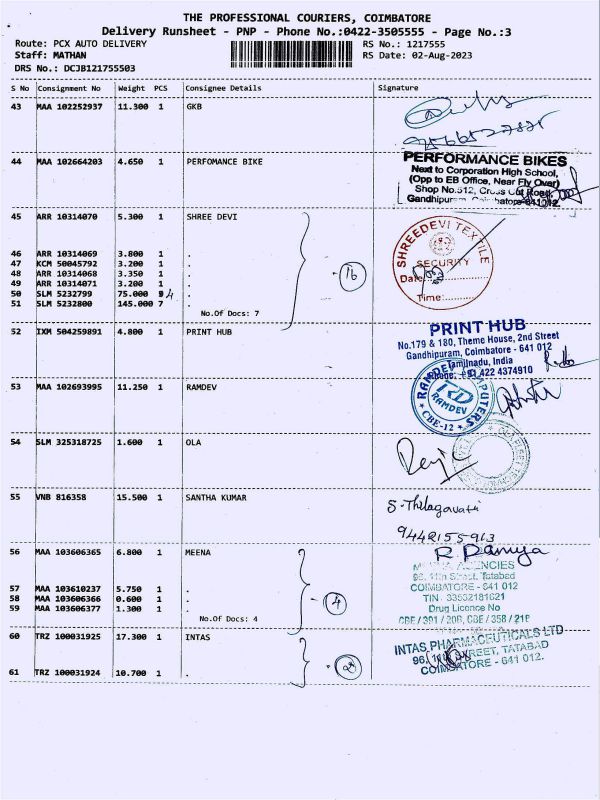 THE PROFESSIONAL COURIERS, COIMBATORE
Delivery Runsheet - PNP - Phone No.:0422-3505555 - Page No.:3
Route: PCX AUTO DELIVERY RS No.: 1217555
Staff: MATHAN RS Date: 02-Aug-2023
DRS No.: DCJB121755503
S No Consignment No Weight PCS Consignee Details Signature
43 MAA 102252937 11.300 1 GKB
44 MAA 102664203 4.650 1 PERFOMANCE BIKE
PERFORMANCE BIKES
Next to Corporation High School,
(Opp to EB Office, Near Fly Over)
Shop No:512, Cross Cut Road,
Gandhipuram, Coimbatore-641012
45 ARR 10314070 5.300 1 SHREE DEVI
SHREEDEVI TEXTILE
SECURITY
Date:
Time:
46 ARR 10314069 3.800 1 .
47 KCM 50045792 3.200 1 .
48 ARR 10314068 3.350 1 .
49 ARR 10314071 3.200 1 .
50 SLM 5232799 75.000 4 .
51 SLM 5232800 145.000 7 .
16
No.Of Docs: 7
52 IXM 504259891 4.800 1 PRINT HUB
PRINT HUB
No.179 & 180, Theme House, 2nd Street
Gandhipuram, Coimbatore - 641 012
Tamilnadu, India
Phone: +91 422 4374910
53 MAA 102693995 11.250 1 RAMDEV
RAMDEV COMPUTERS
RD
RAMDEV
CBE-12
54 SLM 325318725 1.600 1 OLA
55 VNB 816358 15.500 1 SANTHA KUMAR
S. Thilagavathi
9442155913
56 MAA 103606365 6.800 1 MEENA
R. Ramya
AGENCIES
96, 11th Street, Tatabad
COIMBATORE - 641 012
TIN : 33552181621
Drug Licence No
CBE / 391 / 20B, CBE / 358 / 21B
57 MAA 103610237 5.750 1 .
58 MAA 103606366 0.600 1 .
59 MAA 103606377 1.300 1 .
4
No.Of Docs: 4
60 TRZ 100031925 17.300 1 INTAS
INTAS PHARMACEUTICALS LTD
96, STREET, TATABAD
COIMBATORE - 641 012.
2
61 TRZ 100031924 10.700 1 .